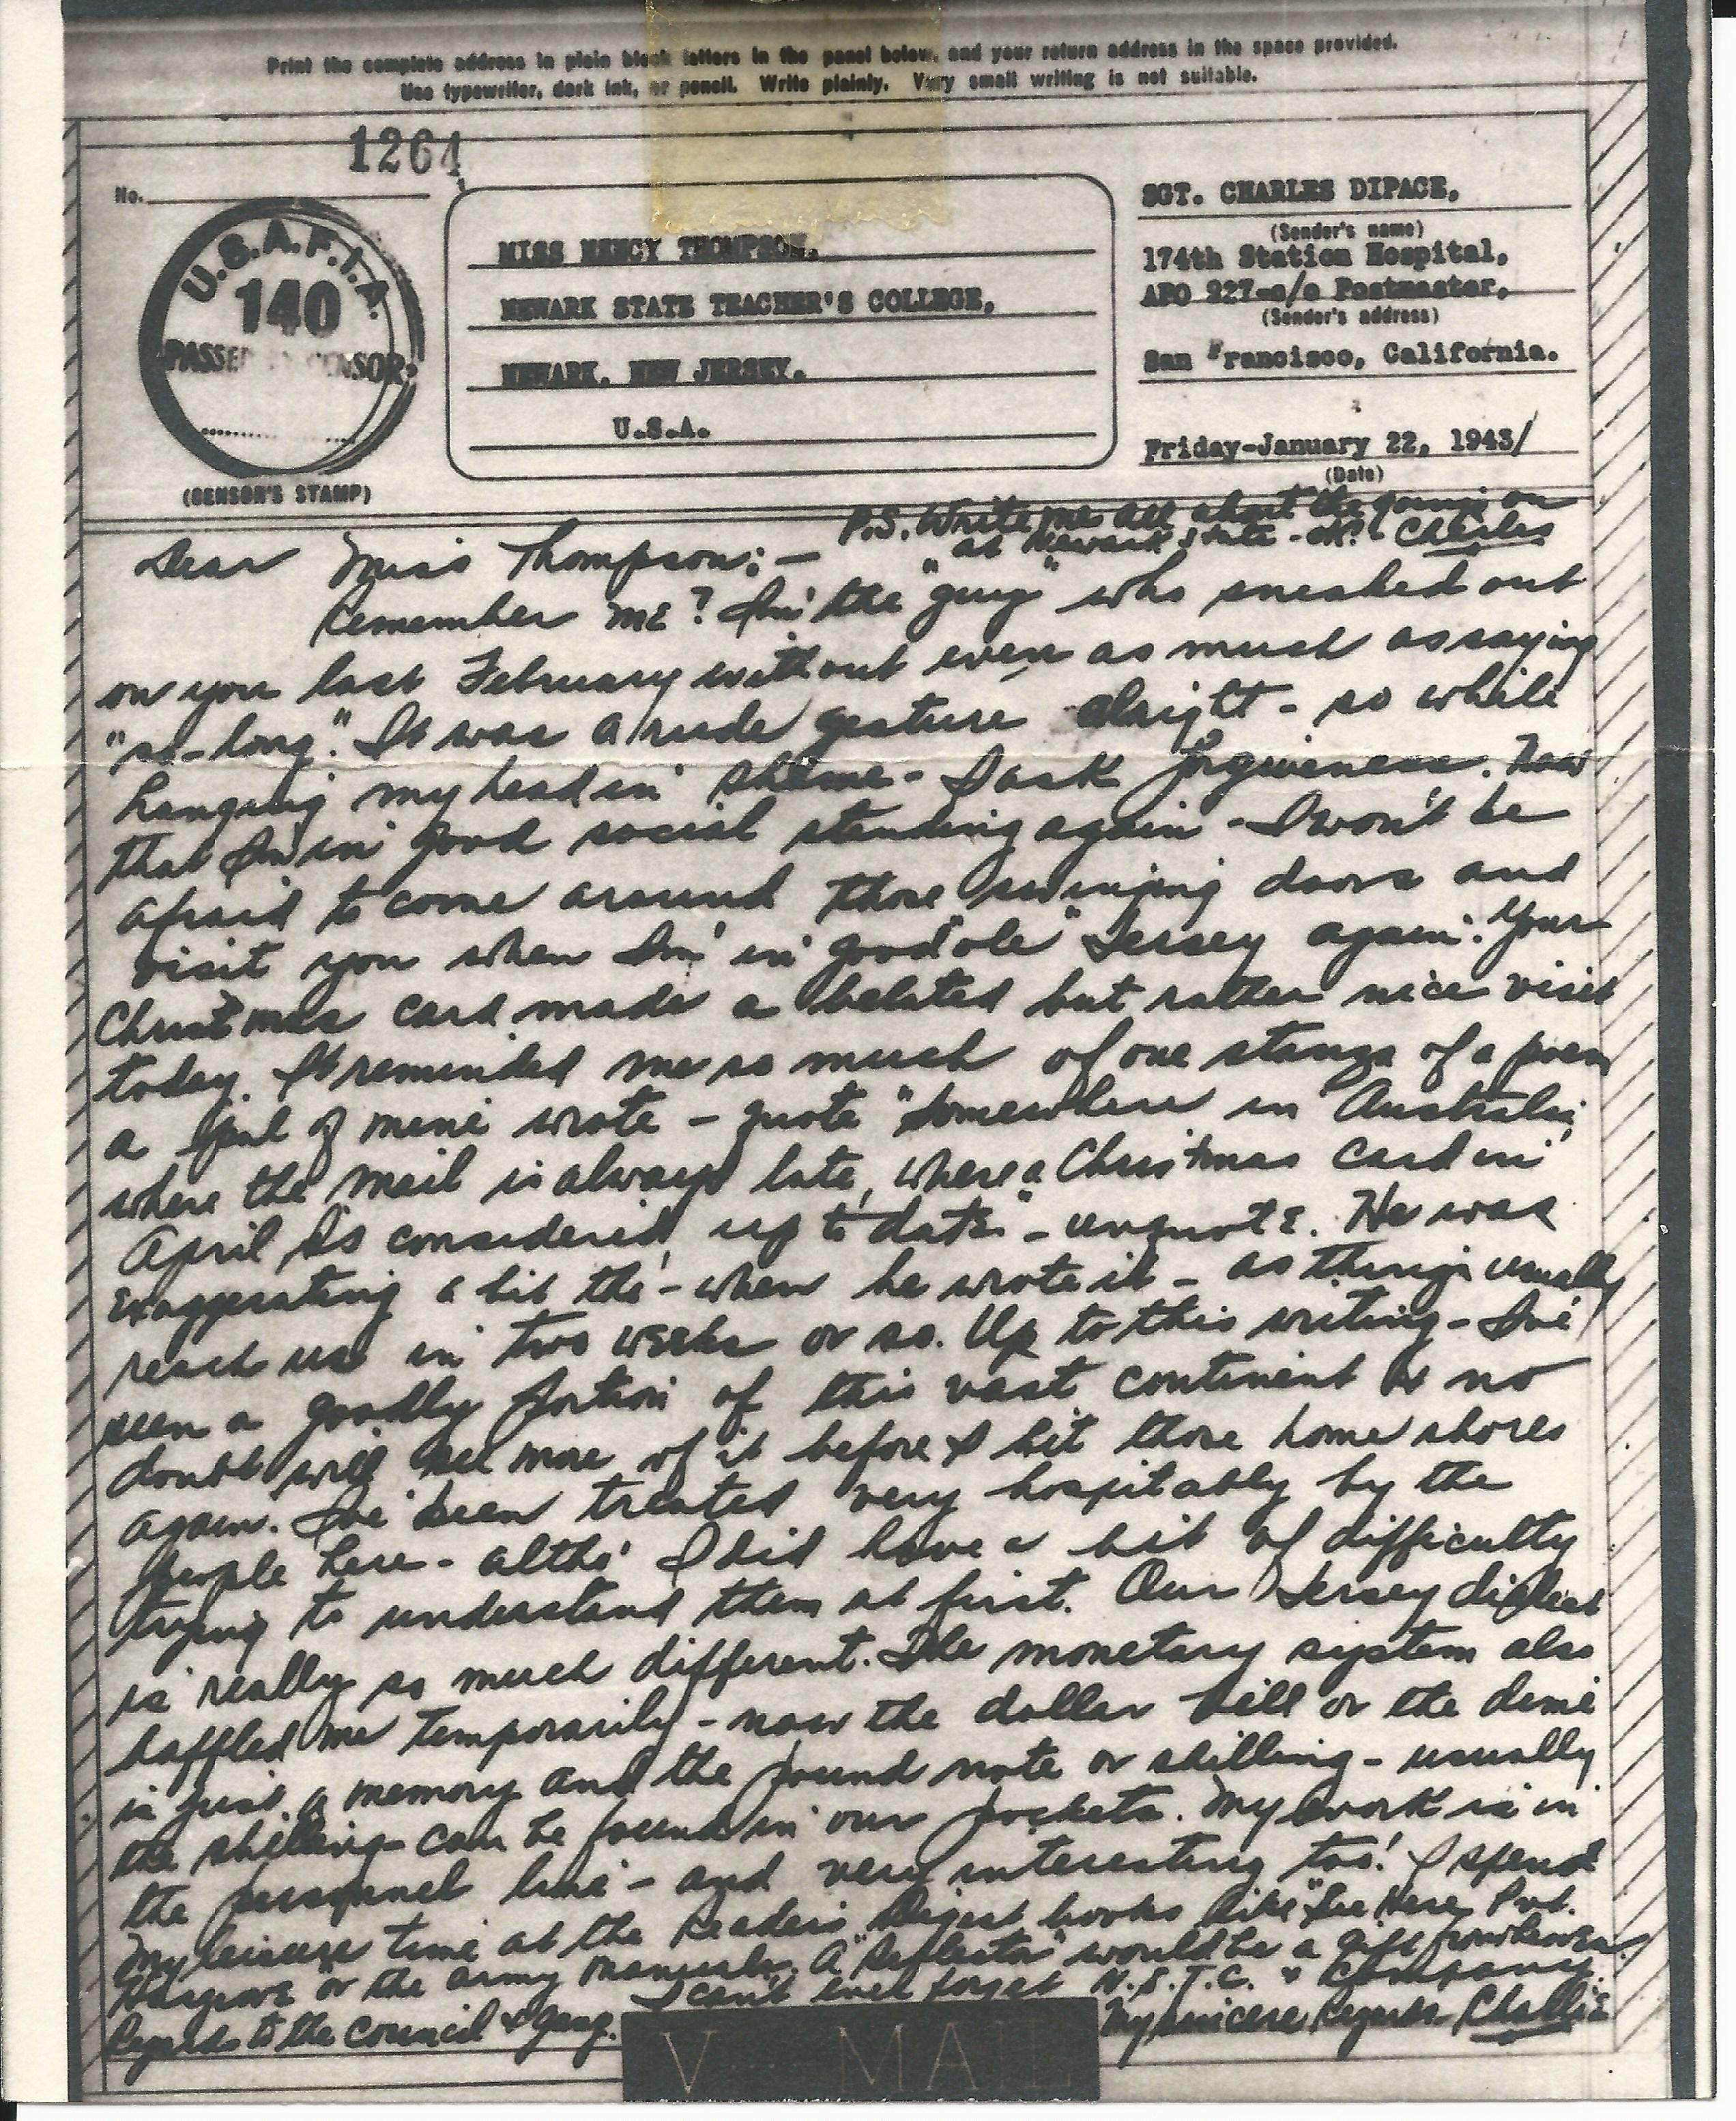 Print the complete address in plain block letters in the panel below, and your return address in the space provided.
Use typewriter, dark ink, or pencil. Write plainly. Very small writing is not suitable.
1264
No.
U.S.A.F.I.A.
140
PASSED BY CENSOR
(CENSOR'S STAMP)
MISS NENCY THOMPSON,
NEWARK STATE TEACHER'S COLLEGE,
NEWARK, NEW JERSEY.
U.S.A.
SGT. CHARLES DIPACE,
(Sender's name)
174th Station Hospital,
APO 227-c/o Postmaster,
(Sender's address)
San Francisco, California.
Friday-January 22, 1943/
(Date)
P.S. Write me all about the goings on
at Newark State - OK? - Charles
Dear Miss Thompson:-
Remember me? I'm the "guy" who sneaked out
on you last February without even as much as saying
"so-long." It was a rude gesture alright - so while
hanging my head in shame - I ask forgiveness. Now
that I'm in good social standing again - I won't be
afraid to come around those swinging doors and
visit you when I'm in good "ole" Jersey again. Your
Christmas card made a belated but rather nice visit
today. It reminded me so much of one stanza of a poem
a pal of mine wrote - quote "Somewhere in Australia,
where the mail is always late, where a Christmas card in
April is considered up to date" - unquote. He was
exaggerating a bit tho' - when he wrote it - as things usually
reach us in two weeks or so. Up to this writing - I've
seen a goodly portion of this vast continent & no
doubt will see more of it before I hit those home shores
again. I've been treated very hospitably by the
people here - altho' I did have a bit of difficulty
trying to understand them at first. Our Jersey dialect
is really so much different. The monetary system also
baffled me temporarily - now the dollar bill or the dime
is just a memory and the pound note or shilling - usually
the shilling can be found in our pockets. My work is in
the personnel line - and very interesting too! I spend
my leisure time at the Readers Digest, books like "See Here Pvt.
Hargrove" or the army manuals. A "Reflector" would be a gift from heaven.
I can't ever forget N.S.T.C. & Company.
Regards to the Council & gang. My sincere Regards Charlie
V MAIL